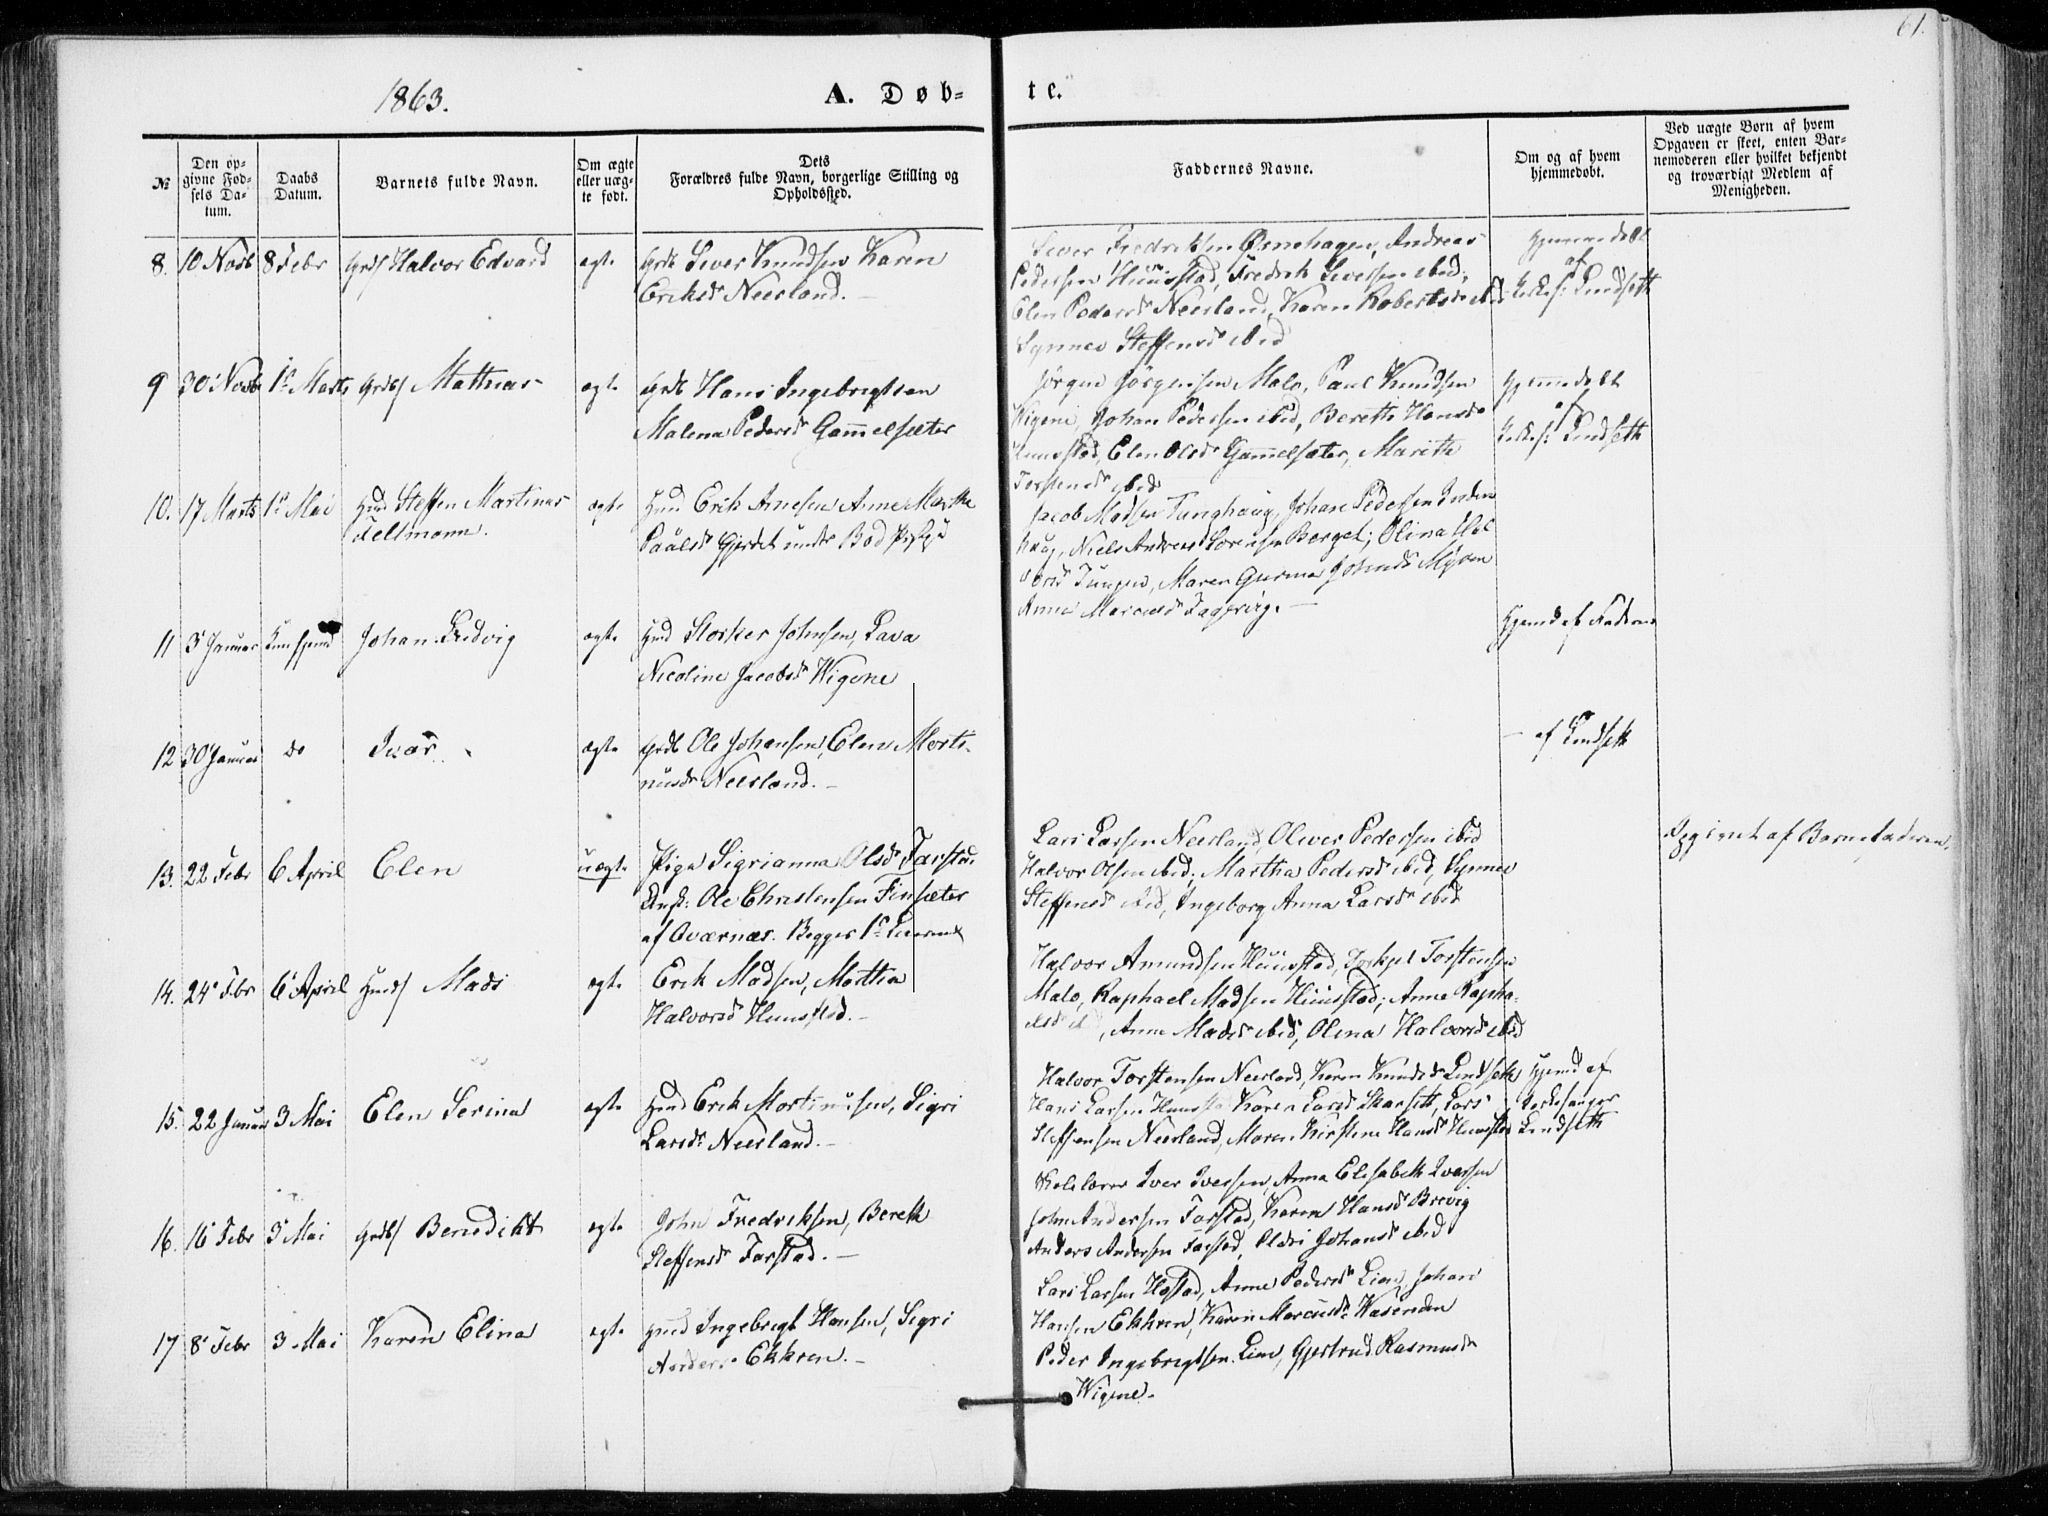 61.
1863.
A. Døb-
te.
№
Den op-
givne Fød-
sels Da-
tum.
Daabs
Datum.
Barnets fulde Navn.
Om ægte
eller uæg-
te født.
Dets
Forældres fulde Navn, borgerlige Stilling og
Opholdssted.
Faddernes Navne.
Om og af hvem
hjemmedøbt.
Ved uægte Børn af hvem
Opgaven er skeet, enten Bar-
nemoderen eller hvilket bekjendt
og troværdigt Medlem af
Menigheden.
8. 10 Novb 8 Febr Halvor Edvard ægte Sever Knudsen Karen
Eriksd Neerland. —
Sever Fredriksen, Andreas
Pedersen Huustad, Fredrik Seversen ibid,
Elen Pedersd Neerland, Karen Robertsd ibid
Synnev Steffensd ibid
Hjemmedøbt
af
Lindseth
9 30 Novb 1 Marts Mathias ægte Hans Ingebregtsen
Malena Pedersd Gammelsæter
Jørgen Jørgensen Malo, Paul Knudsen
Wigene, Johan Pedersen ibid, Bereth Hansd
Huustad, Elen Olsd Gammelsæter, Marith
Torstensd ibid
af
Lindseth
10. 17 Marts 1 Mai Steffen Martinus
Tellmann.
ægte Erik Arnesen Anne Marthe
Paalsd Gjerdet under Bod
Jacob Madsen Tunghaug, Johan Pedersen
Niels Andreas Sørensen Berget; Olina
Tungen, Maren Gurina Johnsd Myren
Anne Marcusd Fagervig. —
11 3 Januar Johan Ludvig ægte Storker Johnsen, Lava
Nicoline Jacobsd Wigene
Hjemd af Faderen
12 30 Januar do Ivar ægte Ole Johansen, Elen Morti-
nusd Neerland. —
— af Lindseth
13. 22 Febr 6 April Elen uægte Pige Sigrianna Olsd Farstad
Ole Christensen Finsæter
af Avernæs. Begges 1ste
Lars Larsen Neerland, Oliver Pedersen ibid
Halvor Olsen ibid, Martha Pedersd ibid, Synnev
Steffensd ibid, Ingeborg Anna Larsd ibid
Opgivet af Barnefaderen.
14. 24 Fbr 6 April Mads ægte Erik Madsen, Martha
Halvorsd Huustad. —
Halvor Amundsen Huustad, Torkjel Torstensen
Malo, Raphael Madsen Huustad; Anne Rapha-
elsd ibid, Anne Madsd ibid, Olina Halvorsd ibid
15. 22 Januar 3 Mai Elen Serina ægte Erik Mortinusen, Sigri
Larsd Neerland. —
Halvor Torstensen Neerland, Karen Knudsd Lindseth
Hans Larsen Huustad Karen Larsd Skarseth, Lars
Steffensen Neerland, Maren Kirstine Hansd Huustad
Hjemd af
Kirkesanger
Lindseth
16. 16 Febr 3 Mai Benedikt ægte John Fredriksen, Bereth
Steffensd Farstad. —
Skolelærer Iver Iversen, Anna Elisabeth Ivarsen
John Andersen Farstad, Karen Hansd Brevig
Anders Andersen Farstad, Oldri Johansd ibid
17 8 Febr 3 Mai Karen Elina ægte Ingebregt Hansen, Sigri
Andersd Ekkren. —
Lars Larsen Hostad, Anne Pedersd Lien, Johan
Hansen Ekkren, Karen Marcusd Wasenden
Peder Ingebregtsen Lien, Gjertrud Rasmusd
Wigene.